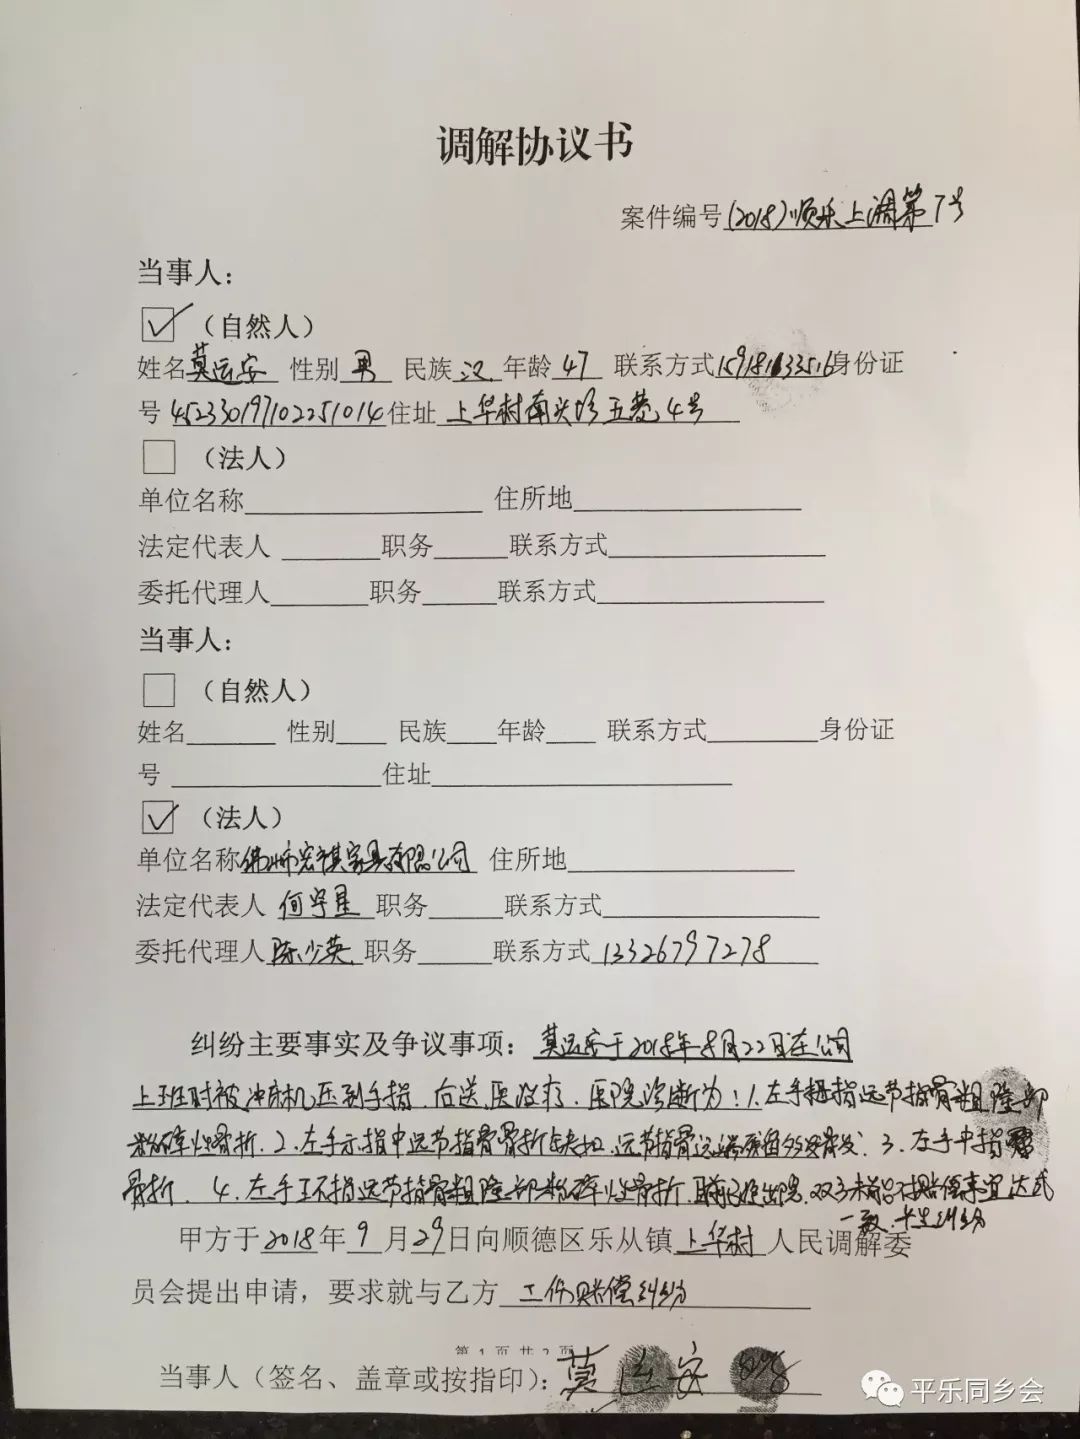 调解协议书
案件编号(2018)顺乐上调第7号
当事人：
（自然人）
姓名莫运安 性别男 民族汉 年龄47 联系方式15918133516身份证
号452330197102251014住址上华村南兴坊五巷4号
（法人）
单位名称 住所地
法定代表人 职务 联系方式
委托代理人 职务 联系方式
当事人：
（自然人）
姓名 性别 民族 年龄 联系方式 身份证
号 住址
（法人）
单位名称佛山市宏祺家具有限公司 住所地
法定代表人 何守星 职务 联系方式
委托代理人陈少英 职务 联系方式13326797278
纠纷主要事实及争议事项：莫运安于2018年8月22日在公司
上班时被冲床机压到手指，后送医治疗，医院诊断为：1.左手拇指远节指骨粗隆部
粉碎性骨折．2．左手示指中远节指骨骨折缺损，远节指骨远端残留多发骨块．3．左手中指
骨折．4．左手环指远节指骨粗隆部粉碎性骨折．目前已经出院，双方未能就赔偿事宜达成
一致，发生纠纷
甲方于2018年9月29日向顺德区乐从镇上华村人民调解委
员会提出申请，要求就与乙方 工伤赔偿纠纷
第 1 页 共 2 页
当事人（签名、盖章或按指印）：莫运安
平乐同乡会